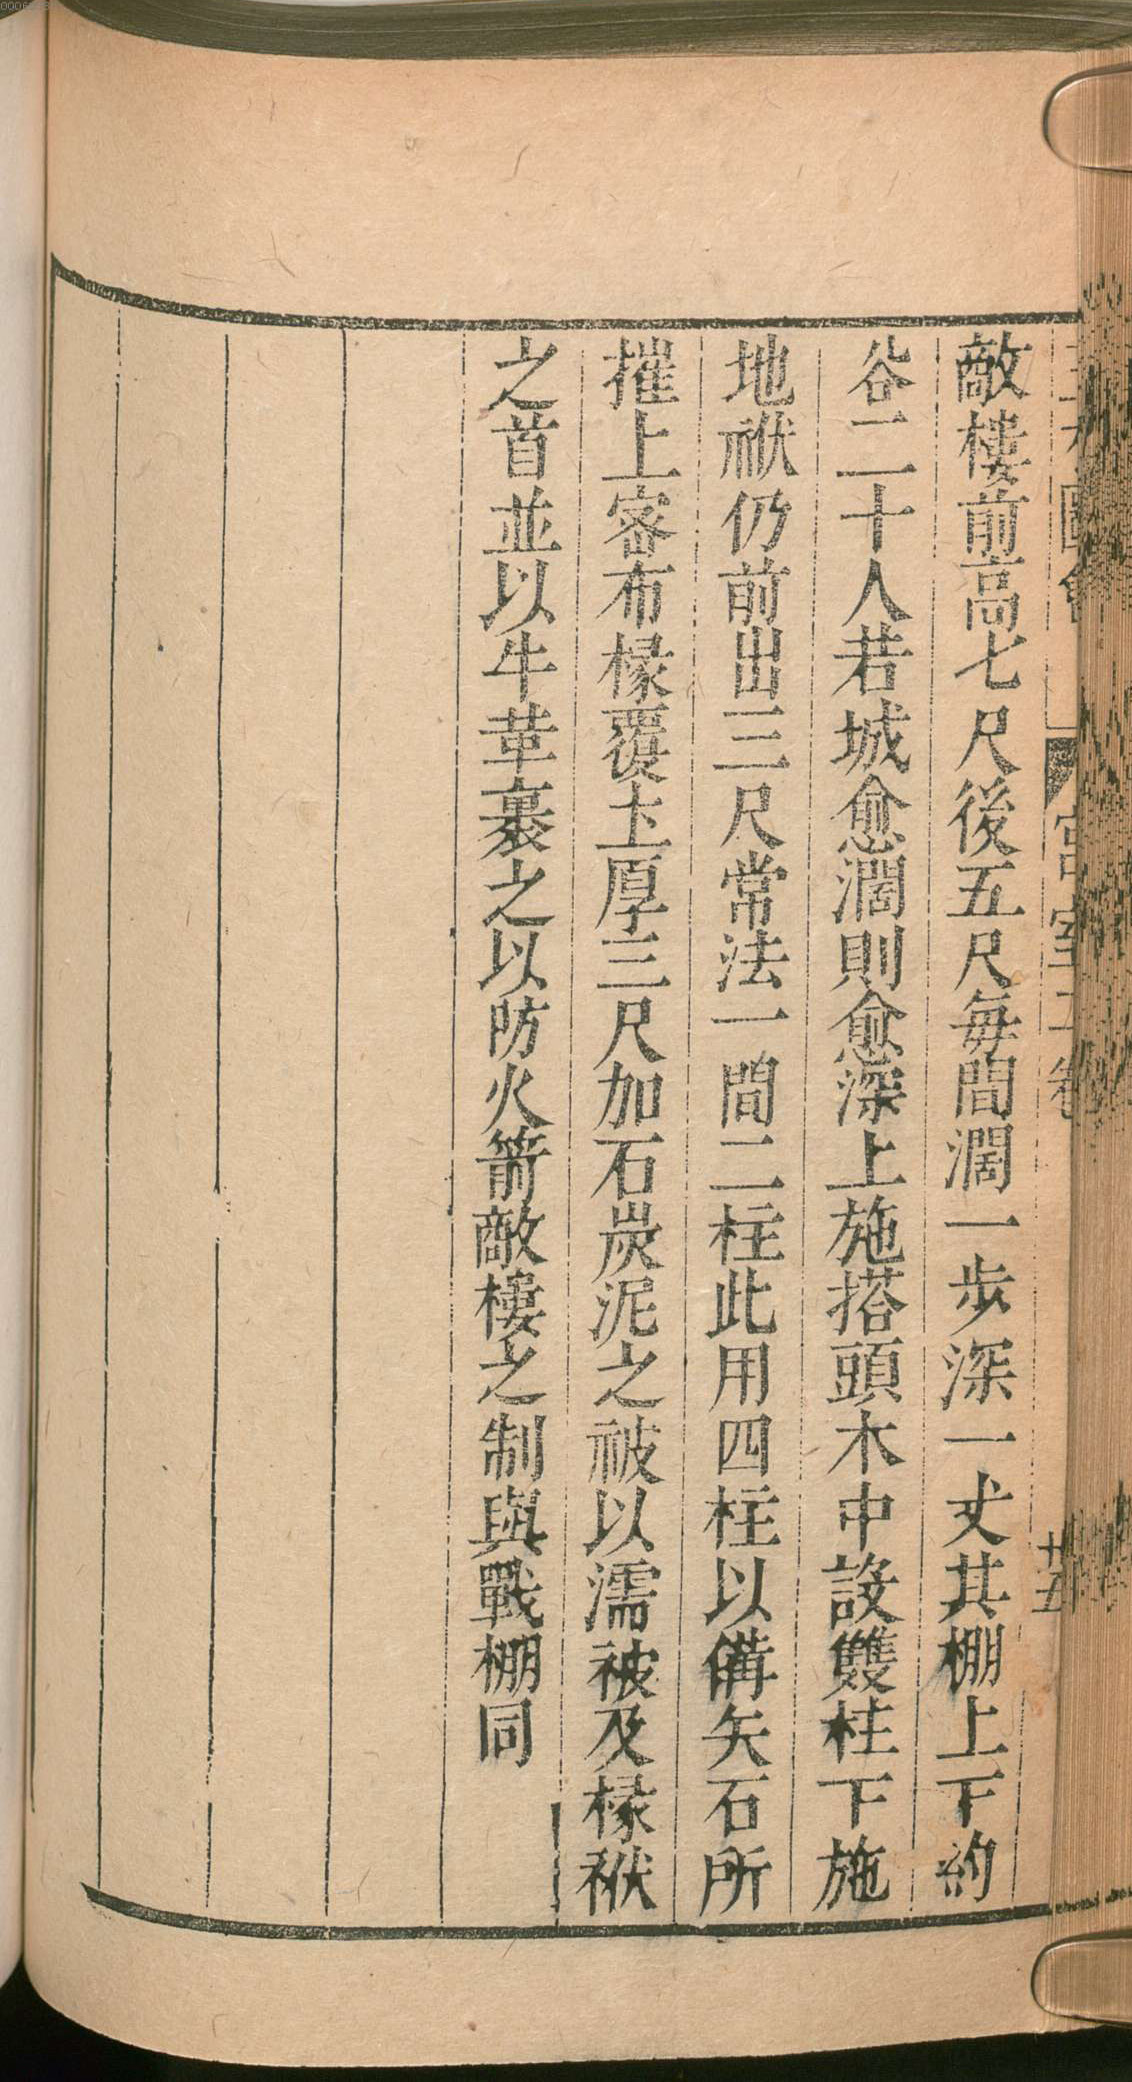 敵樓前高七尺後五尺每間濶一步深一丈其棚上下約
谷二十人若城愈濶則愈深上施搭頭木中設雙柱下施
地栿仍前出三尺常法一間二柱此用四柱以備矢石所
摧上密布椽覆土厚三尺加石炭泥之被以濡被及椽栿
之首並以牛革裹之以防火箭敵樓之制與戰棚同
宮室二卷
十五